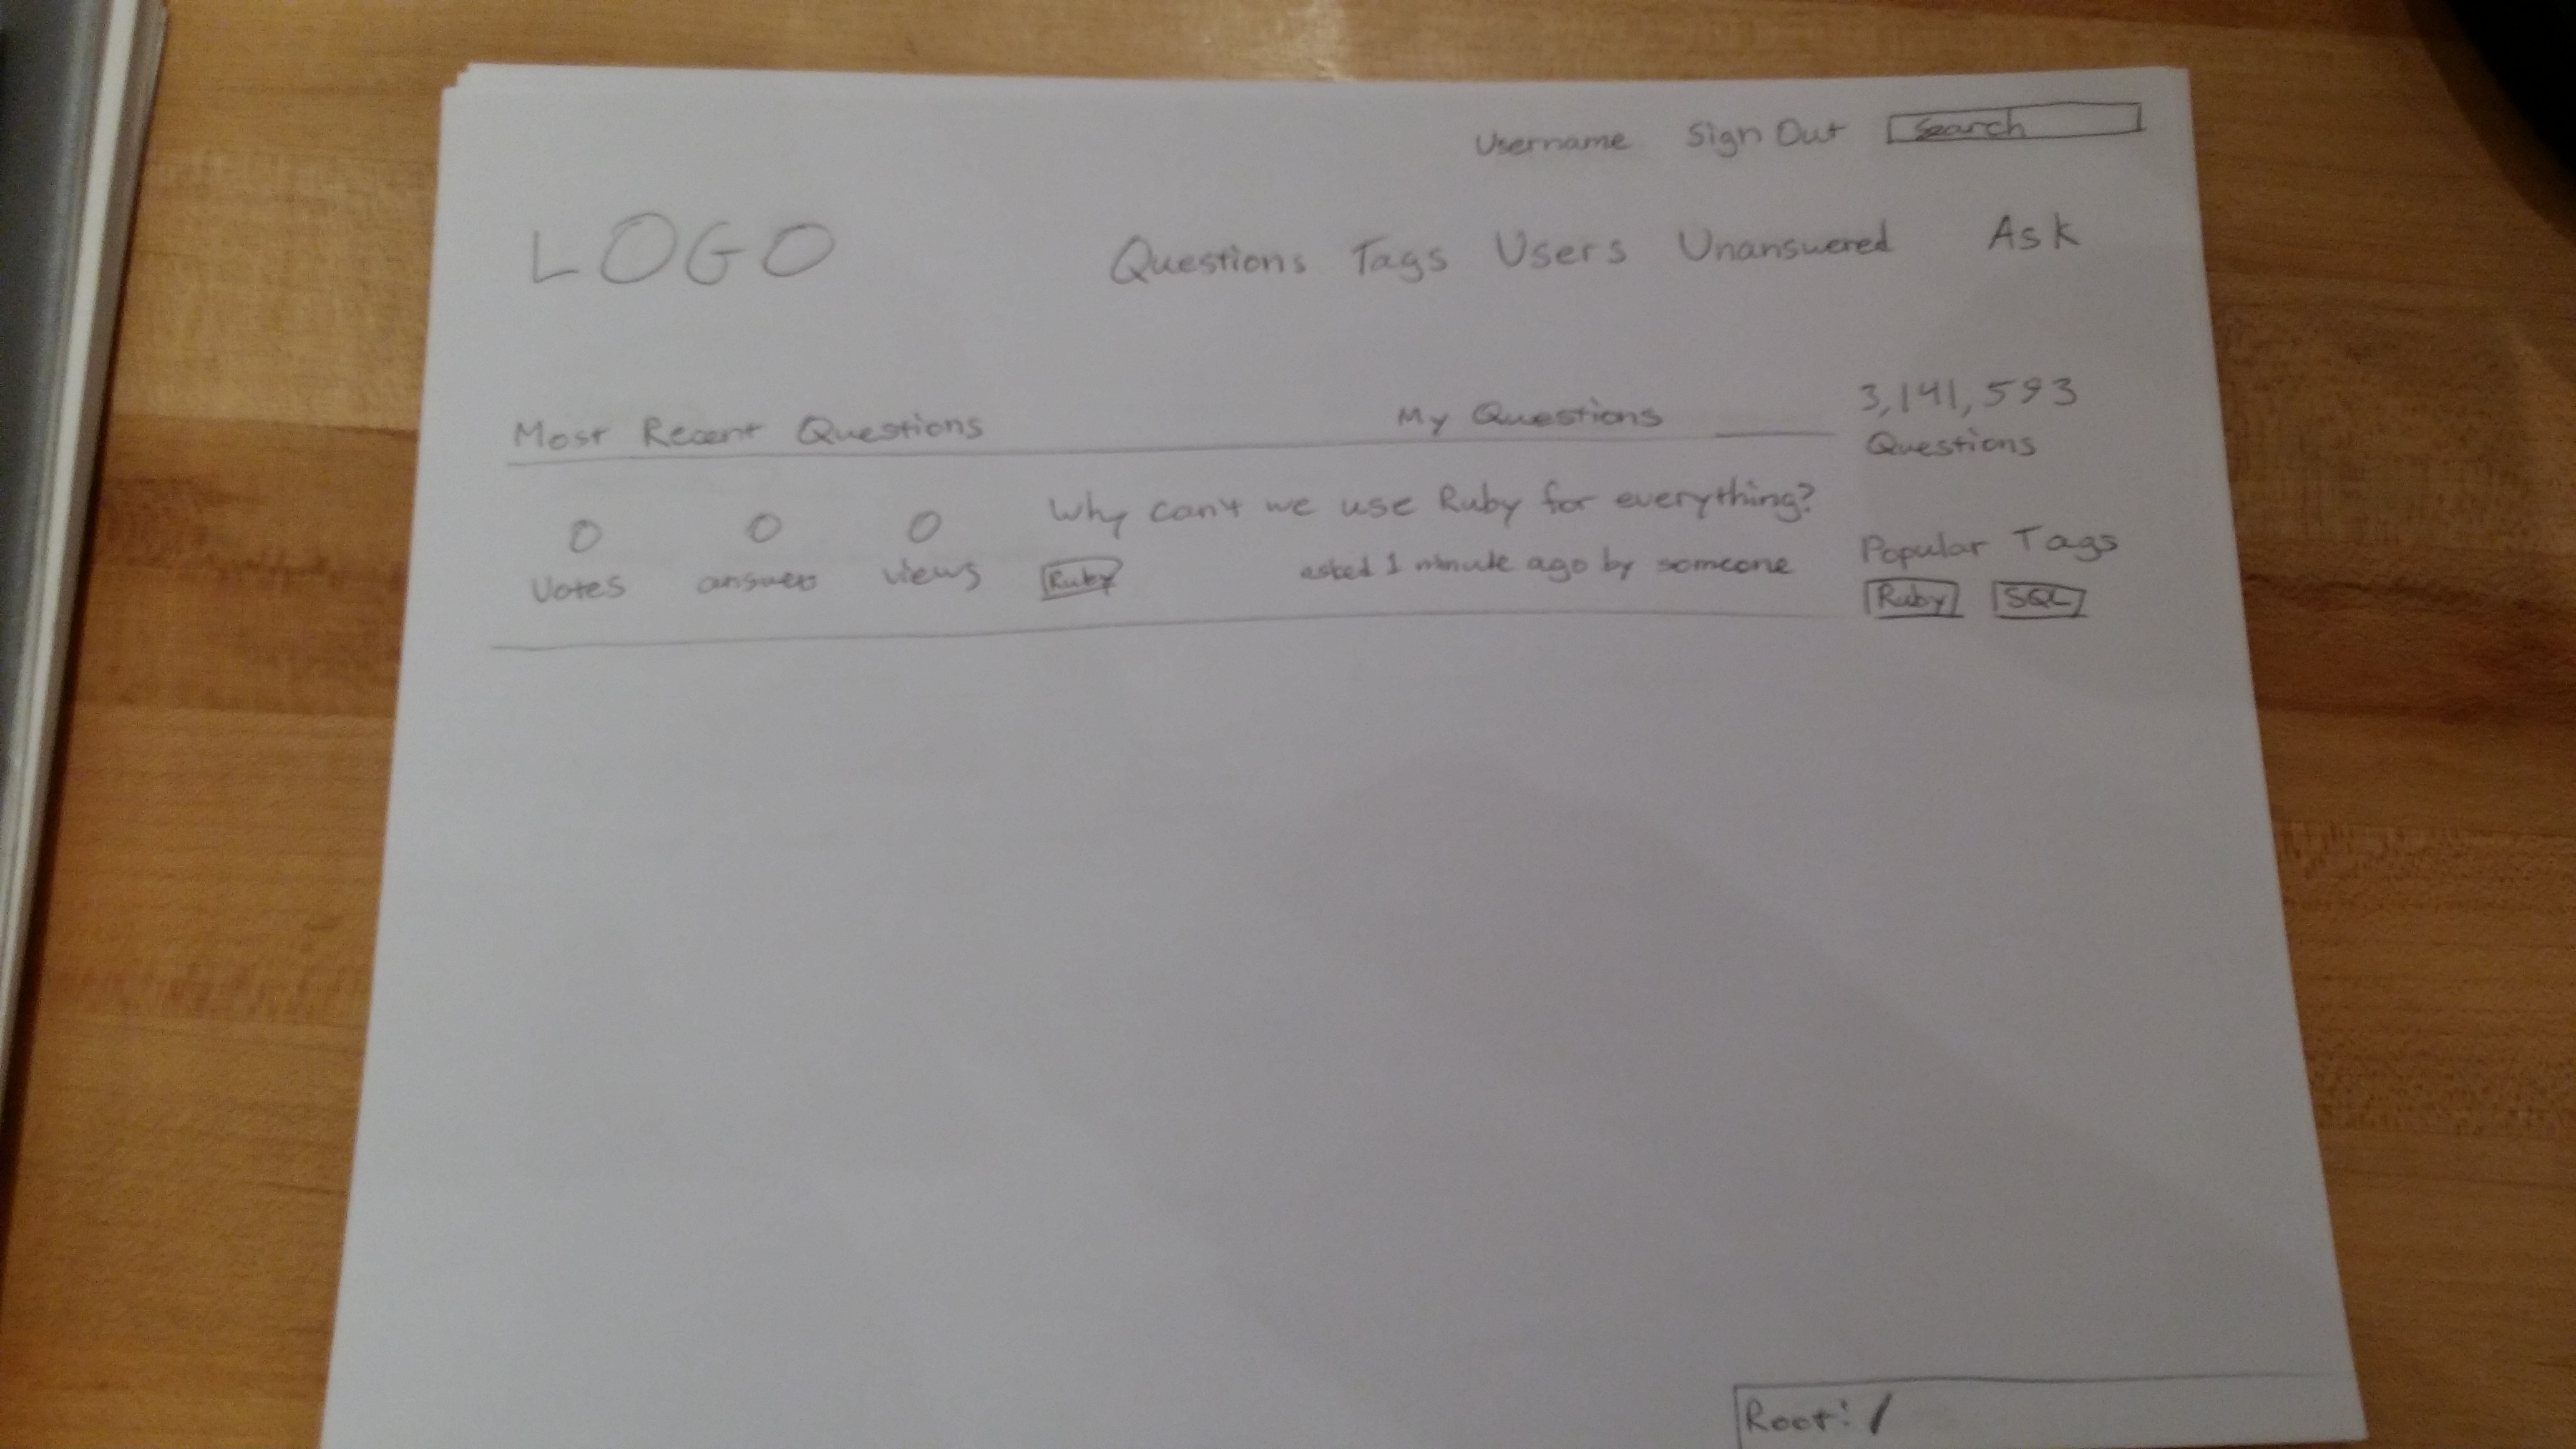 Username Sign Out Search
LOGO Questions Tags Users Unanswered Ask
Most Recent Questions My Questions 3,141,593
Questions
0 0 0 Why can't we use Ruby for everything?
Votes answers views Ruby asked 1 minute ago by someone
Popular Tags
Ruby SQL
Root: /